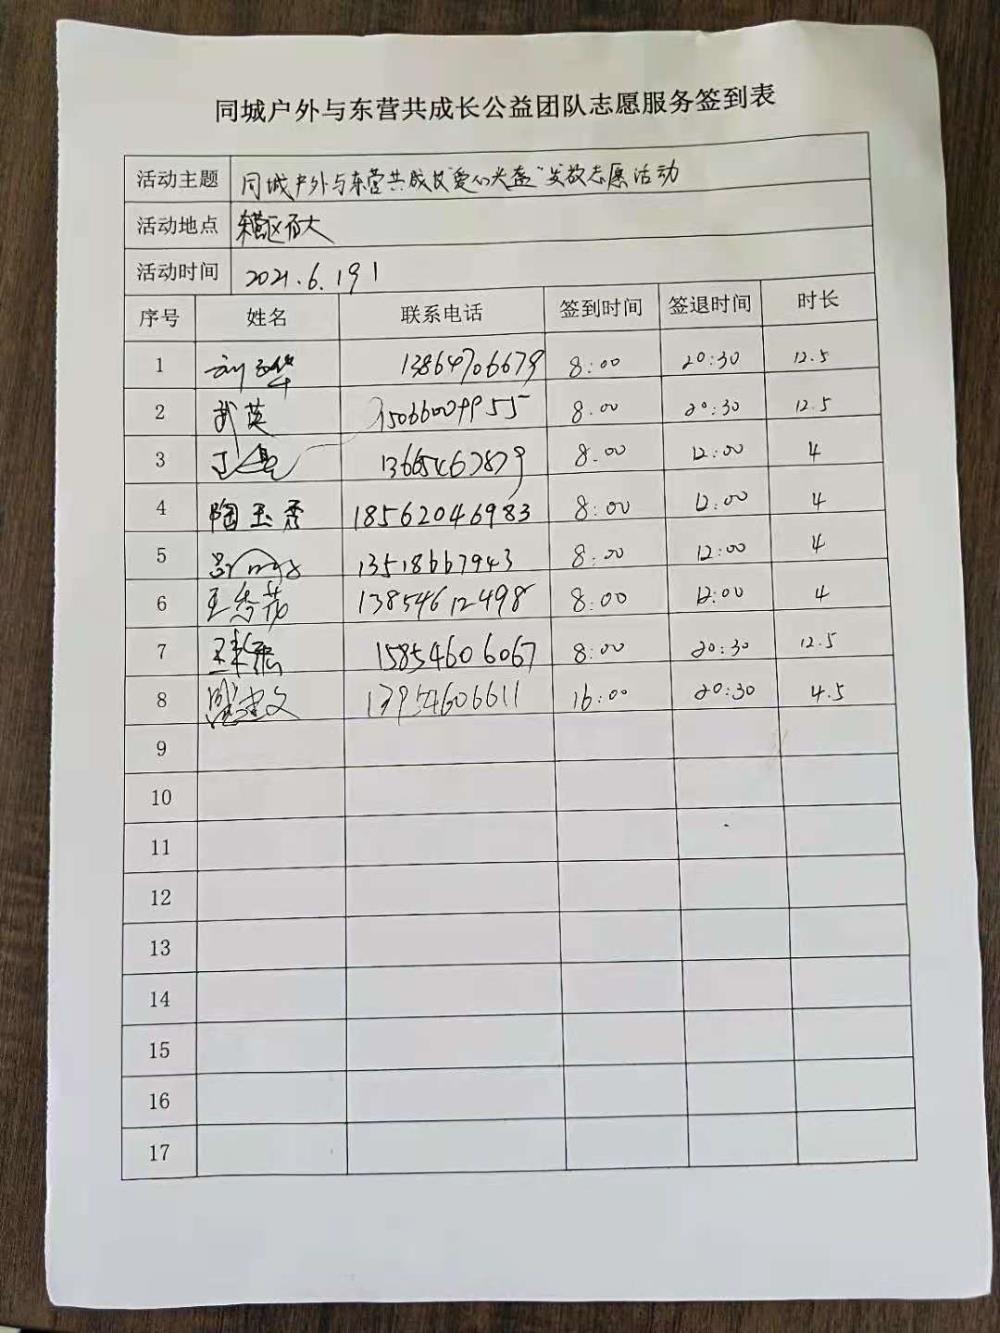 同城户外与东营共成长公益团队志愿服务签到表
活动主题 同城户外与东营共成长"爱心头盔"发放志愿活动
活动地点
活动时间 2021.6.19
序号 姓名 联系电话 签到时间 签退时间 时长
1 13864706679 8:00 20:30 12.5
2 武英 8:00 20:30 12.5
3 8:00 12:00 4
4 陶玉秀 18562046983 8:00 12:00 4
5 13518667943 8:00 12:00 4
6 王秀花 13854612498 8:00 12:00 4
7 15854606067 8:00 20:30 12.5
8 13954606611 16:00 20:30 4.5
9
10
11
12
13
14
15
16
17